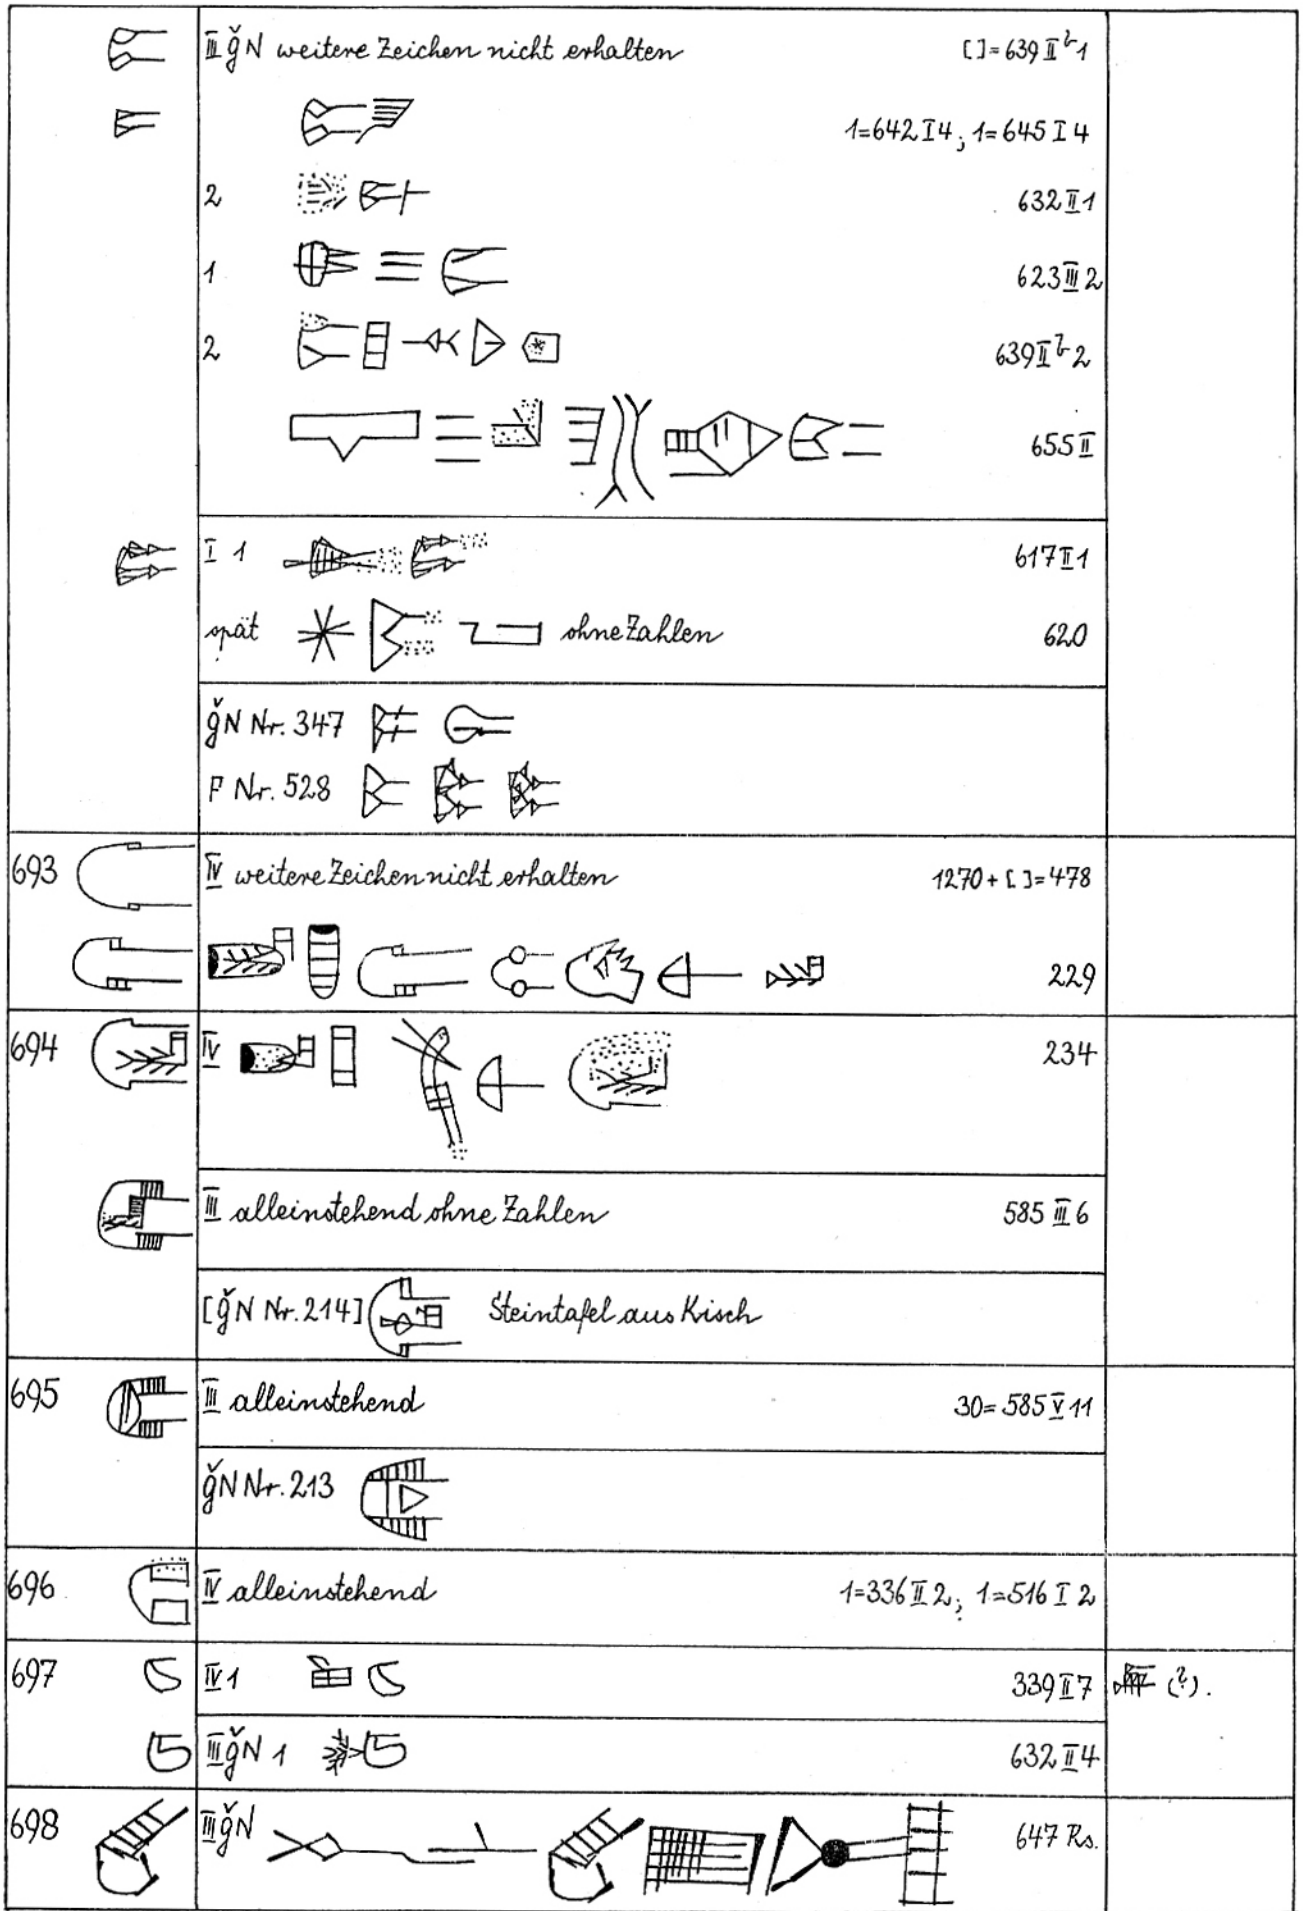 III ǧN weitere Zeichen nicht erhalten [ ]=639 II b 1
1=642 I 4; 1=645 I 4
2 632 II 1
1 623 III 2
2 639 II b 2
655 II
I 1 617 II 1
spät ohne Zahlen 620
ǧN Nr. 347
F Nr. 528
693 IV weitere Zeichen nicht erhalten 1270+[ ]=478
229
694 IV 234
III alleinstehend ohne Zahlen 585 III 6
[ǧN Nr. 214] Steintafel aus Kisch
695 III alleinstehend 30=585 V 11
ǧN Nr. 213
696 IV alleinstehend 1=336 II 2; 1=516 I 2
697 IV 1 339 II 7 (?).
III ǧN 1 632 II 4
698 III ǧN 647 Rs.